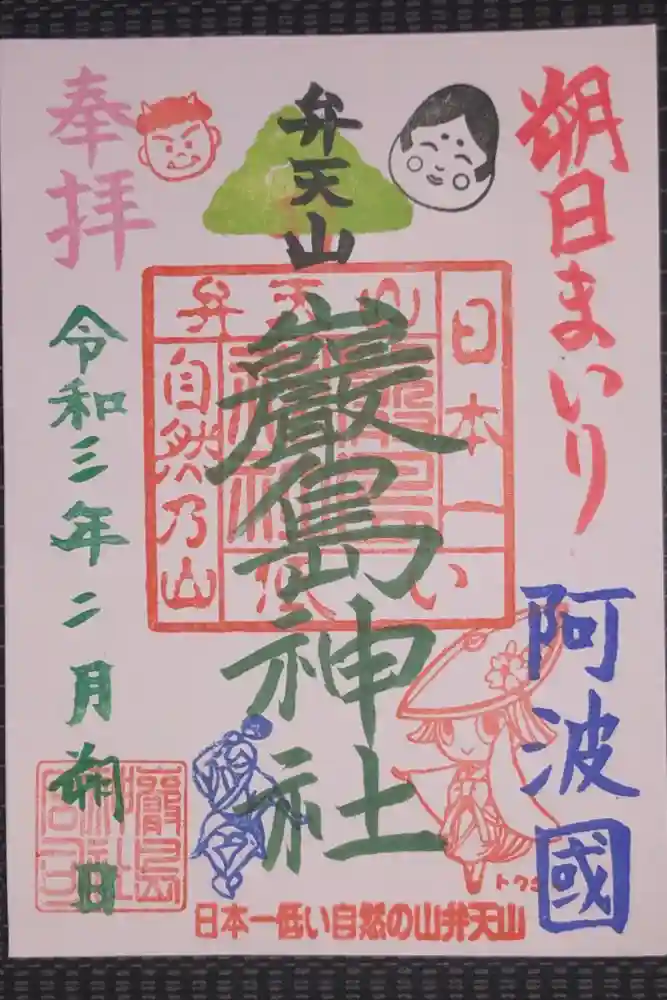 朔日まいり
阿波國
弁天山
巖島神社
日本一
低い
弁天山
自然乃山
奉拝
令和三年二月朔日
日本一低い自然の山弁天山